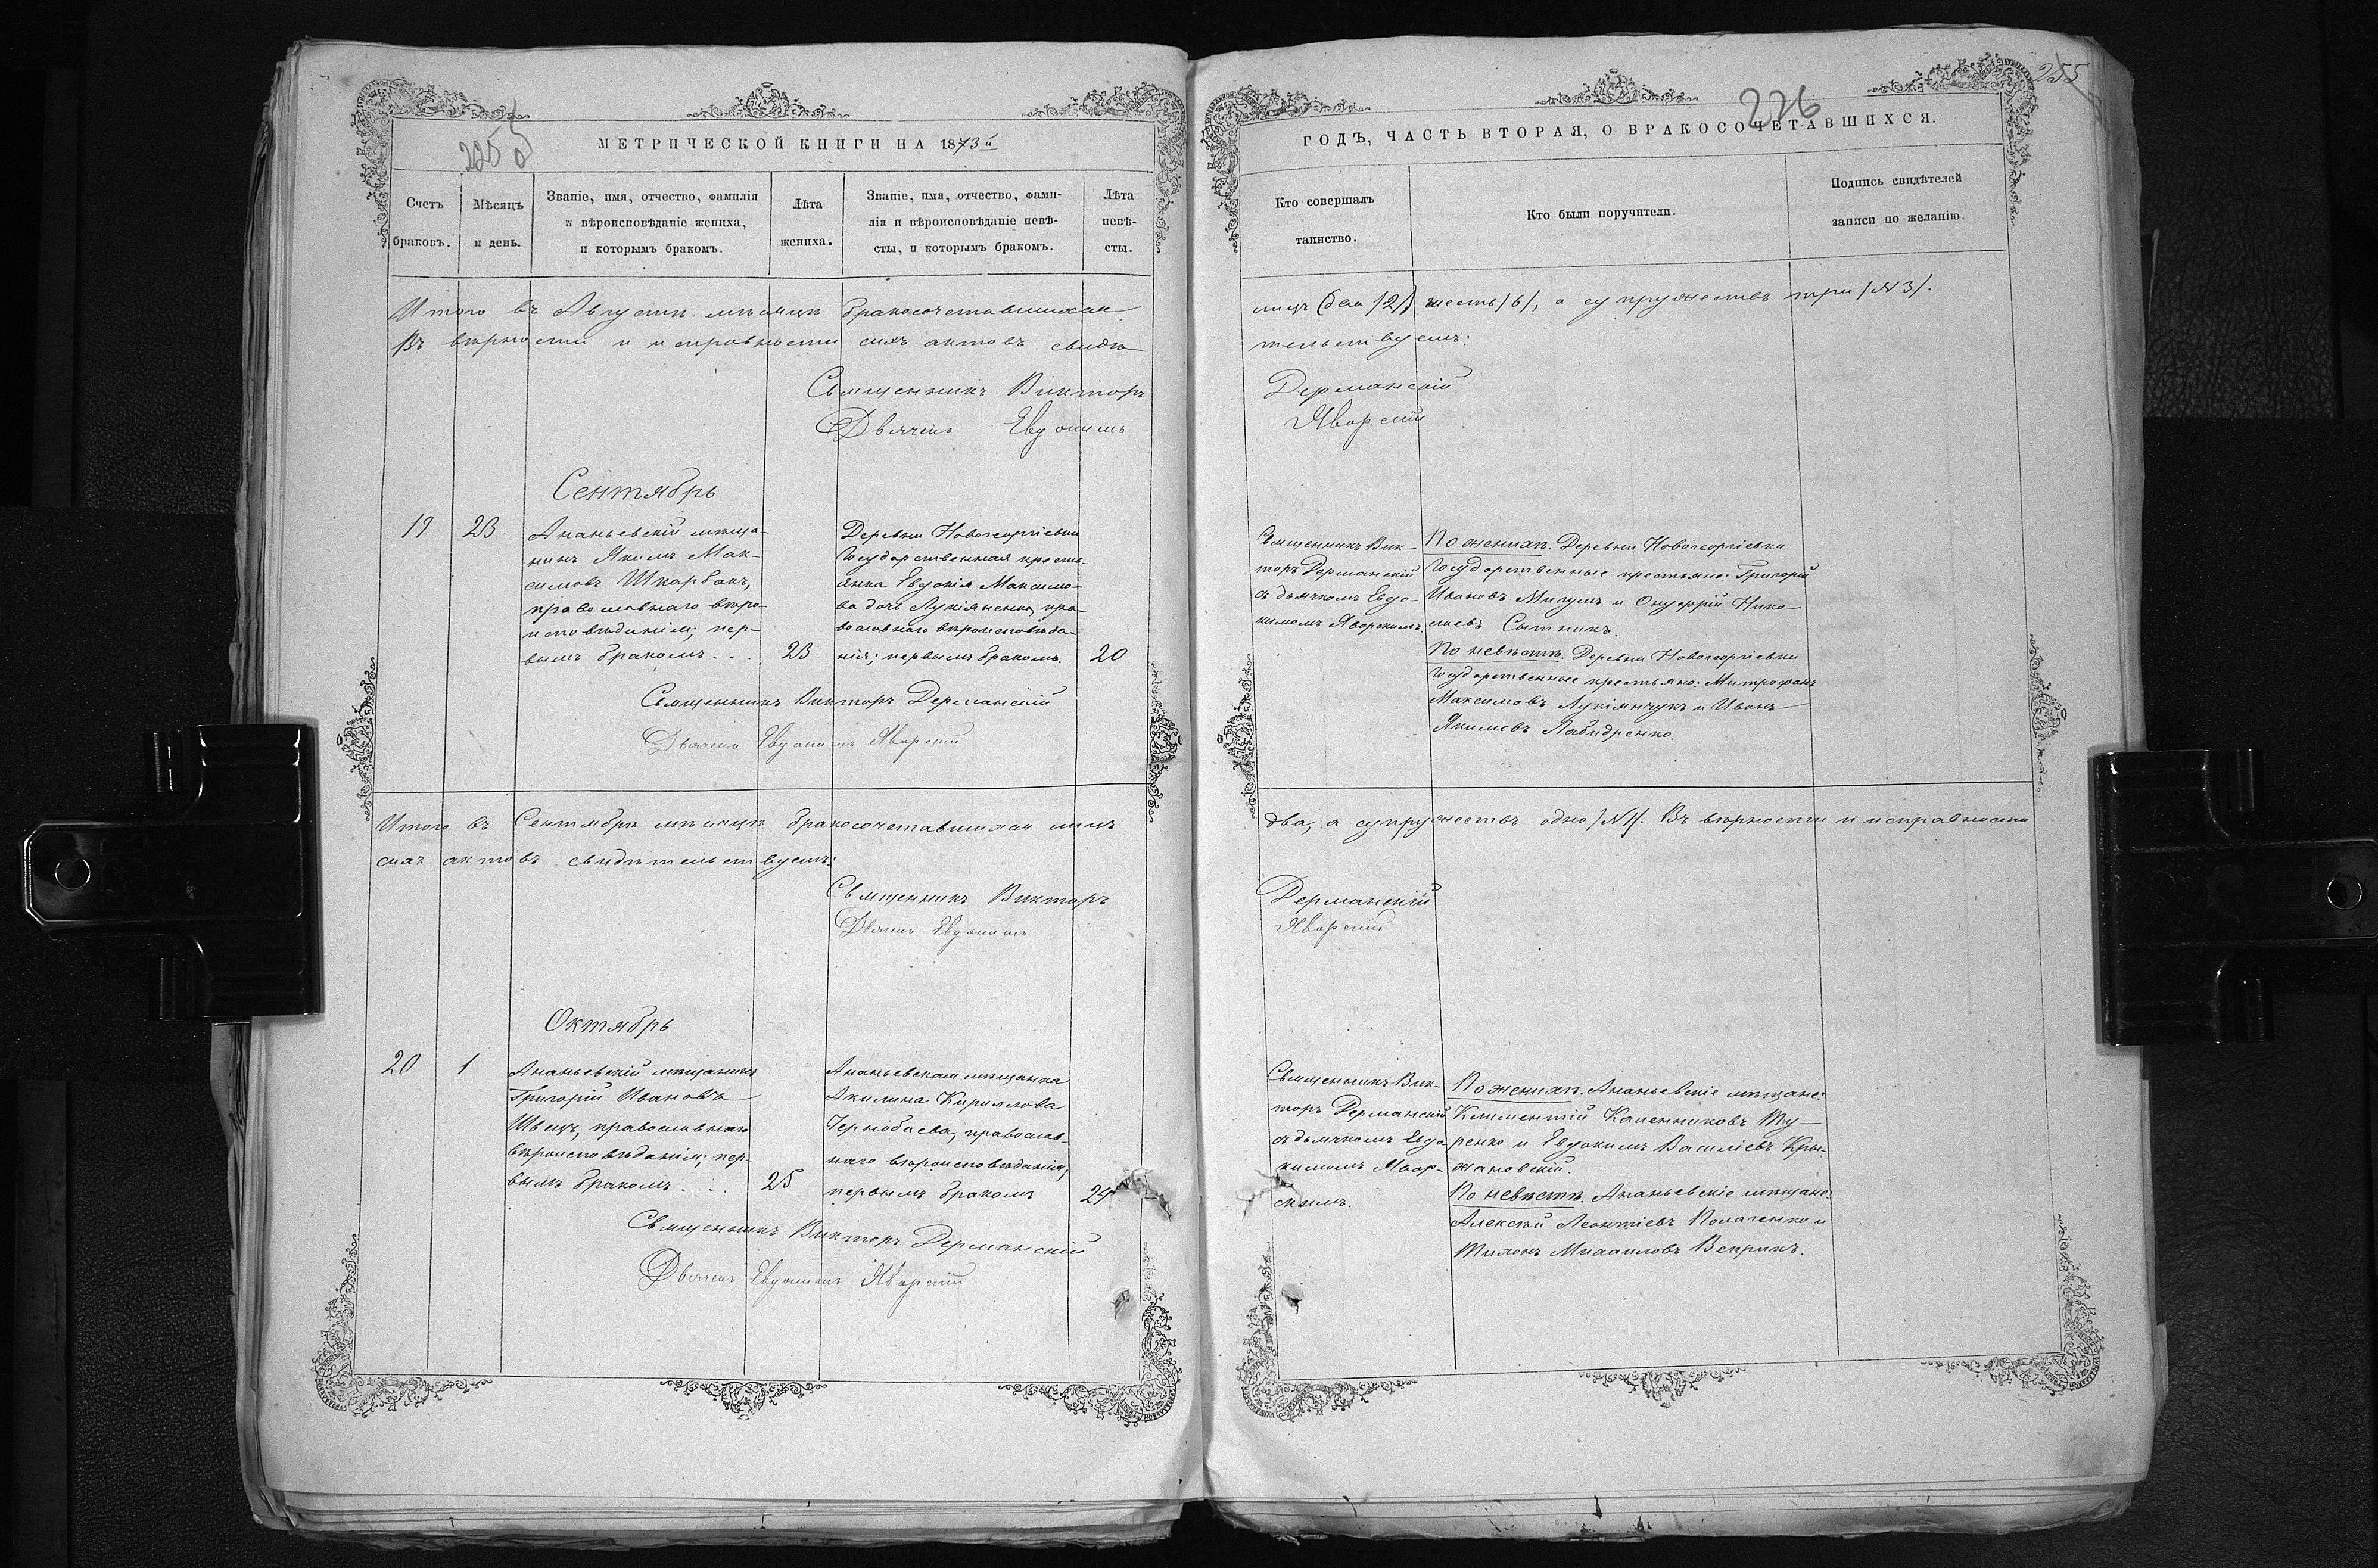 225 об
МЕТРИЧЕСКОЙ КНИГИ НА 1873й
Счетъ браковъ.
Мѣсяцъ и день.
Званіе, имя, отчество, фамилія
и вѣроисповѣданіе жениха,
и которымъ бракомъ.
Лѣта жениха.
Званіе, имя, отчество, фами-
лія и вѣроисповѣданіе невѣ-
сты, и которымъ бракомъ.
Лѣта невѣ-
сты.
Итого въ Августѣ мѣсяцѣ бракосочетавшихся
Въ вѣрности и исправности сихъ актовъ свидѣ
Священникъ Викторъ
Дьячекъ Евдокимъ
Сентябрь
19
23
Ананьевскій мѣща-
нинъ Якимъ Мак-
симовъ Шкарбанъ,
православнаго вѣро-
исповѣданія; пер-
вымъ бракомъ . . .
23
Деревни Новогеоргіевки
Государственная кресть-
янка Евдокія Максимо-
ва дочь Лукіяненко, пра-
вославнаго вѣроисповѣда-
нія; первымъ бракомъ.
20
Священникъ Викторъ Дерманскій
Дьячекъ Евдокимъ Яворскій
Итого въ Сентябрѣ мѣсяцѣ бракосочетавшихся лицъ
сихъ актовъ свидѣтельствуемъ:
Священникъ Викторъ
Дьячекъ Евдокимъ
Октябрь
20
1
Ананьевскій мѣщанинъ
Григорій Ивановъ
Швецъ, православнаго
вѣроисповѣданія; пер-
вымъ бракомъ . . .
25
Ананьевская мѣщанка
Акилина Кириллова
Чернобаева, православ-
наго вѣроисповѣданія,
первымъ бракомъ
24
Священникъ Викторъ Дерманскій
Дьячекъ Евдокимъ Яворскій
255
226
ГОДЪ, ЧАСТЬ ВТОРАЯ, О БРАКОСОЧЕТАВШИХСЯ.
Кто совершалъ
таинство.
Кто были поручители.
Подпись свидѣтелей
записи по желанію.
лицъ шесть /6/, а супружествъ три /№ 3/.
тельствуемъ:
Дерманскій
Яворскій
Священникъ Вик-
торъ Дерманскій
съ дьячкомъ Евдо-
кимомъ Яворскимъ.
По женихѣ. Деревни Новогеоргіевки
Государственные крестьяне: Григорій
Ивановъ Мигуль и Онуфрій Нико-
лаевъ Сытникъ.
По невѣстѣ. Деревни Новогеоргіевки
Государственные крестьяне: Митрофанъ
Максимовъ Лукіянчукъ и Иванъ
Якимовъ
два, а супружествъ одно /№ 1/. Въ вѣрности и исправности
Дерманскій
Яворскій
Священникъ Вик-
торъ Дерманскій
съ дьячкомъ Евдо-
кимомъ Явор-
скимъ.
По женихѣ. Ананьевскіе мѣщане:
Климентій Каленниковъ Ту-
ренко и Евдокимъ Василіевъ Кры-
жановскій.
По невѣстѣ. Ананьевскіе мѣщане:
Алексѣй Леонтіевъ Полаченко и
Тихонъ Михаиловъ Веприкъ.